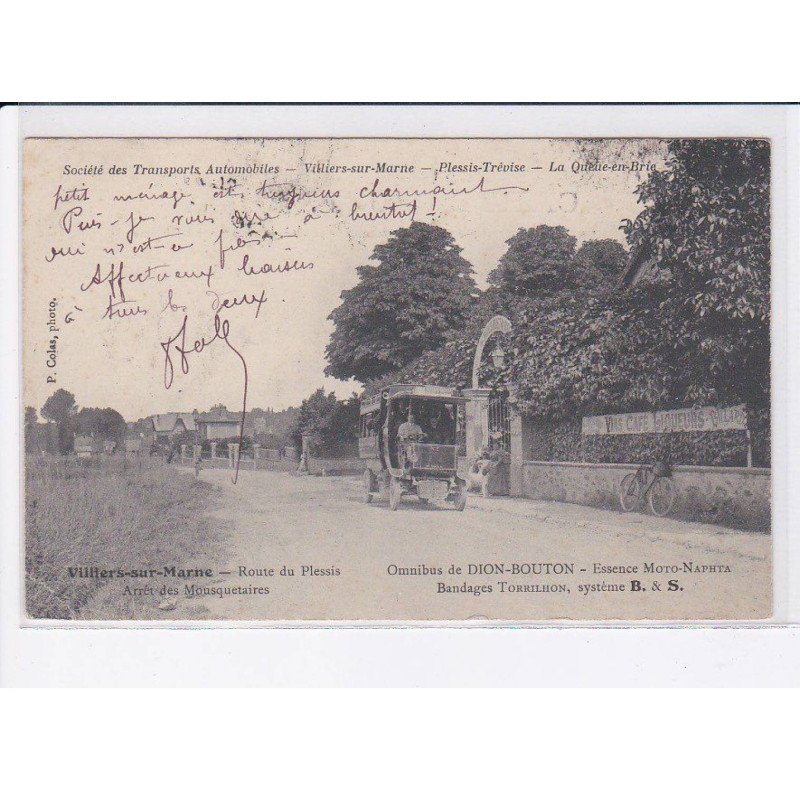 Société des Transports Automobiles — Villiers-sur-Marne — Plessis-Trévise — La Queue-en-Brie
petit ménage est toujours charmant
Puis-je vous dire à bientôt !
oui n'est-ce pas
Affectueux baisers
à tous les deux
P. Colas, photo.
VINS CAFÉ LIQUEURS
Villiers-sur-Marne — Route du Plessis
Arrêt des Mousquetaires
Omnibus de DION-BOUTON - Essence MOTO-NAPHTA
Bandages TORRILHON, système B. & S.